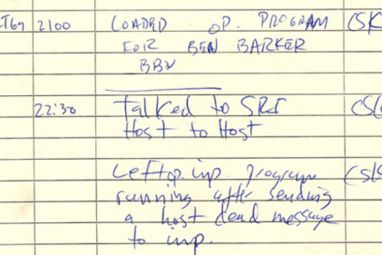 CT69 2100 LOADED OP. PROGRAM (SK
FOR BEN BARKER
BBN
22:30 Talked to SRI (Sl
Host to Host
Left op. imp. program (Sl
running after sending
a host dead message
to imp.